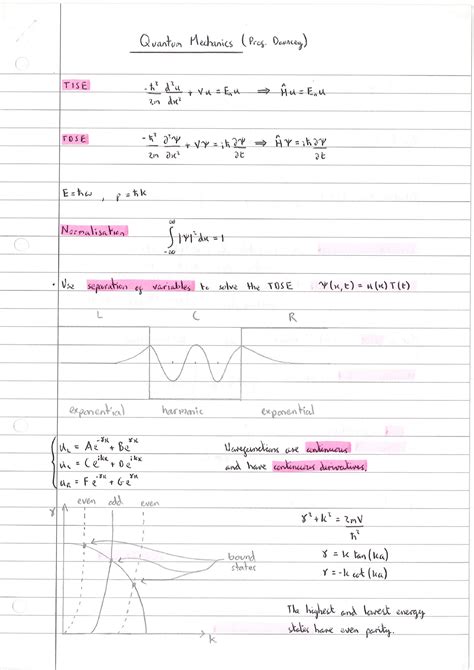 Quantum Mechanics (Prof. Dauncey)
TISE -ħ²/2m d²u/dx² + Vu = Eₙu ⟹ Ĥu = Eₙu
TDSE -ħ²/2m ∂²Ψ/∂x² + VΨ = iħ ∂Ψ/∂t ⟹ ĤΨ = iħ ∂Ψ/∂t
E = ħω , p = ħk
Normalisation ∫ |Ψ|² dx = 1
• Use separation of variables to solve the TDSE Ψ(x,t) = u(x)T(t)
L C R
exponential harmonic exponential
Wavefunctions are continuous
and have continuous derivatives.
even odd even
γ
γ² + k² = 2mV/ħ²
γ = k tan(ka)
γ = -k cot(ka)
bound
states
The highest and lowest energy
states have even parity.
k